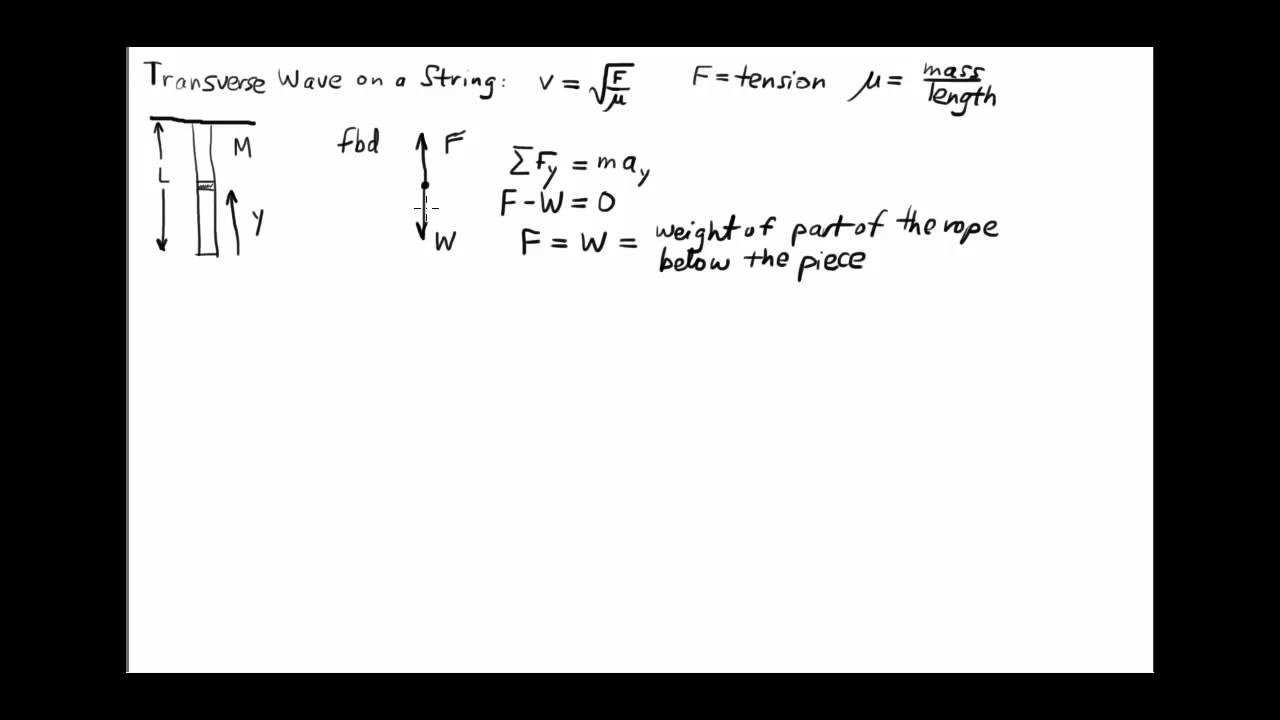 Transverse Wave on a String: v = √(F/μ) F = tension μ = mass/length
M
L
Y
fbd F
W
ΣFy = may
F - W = 0
F = W = weight of part of the rope
below the piece